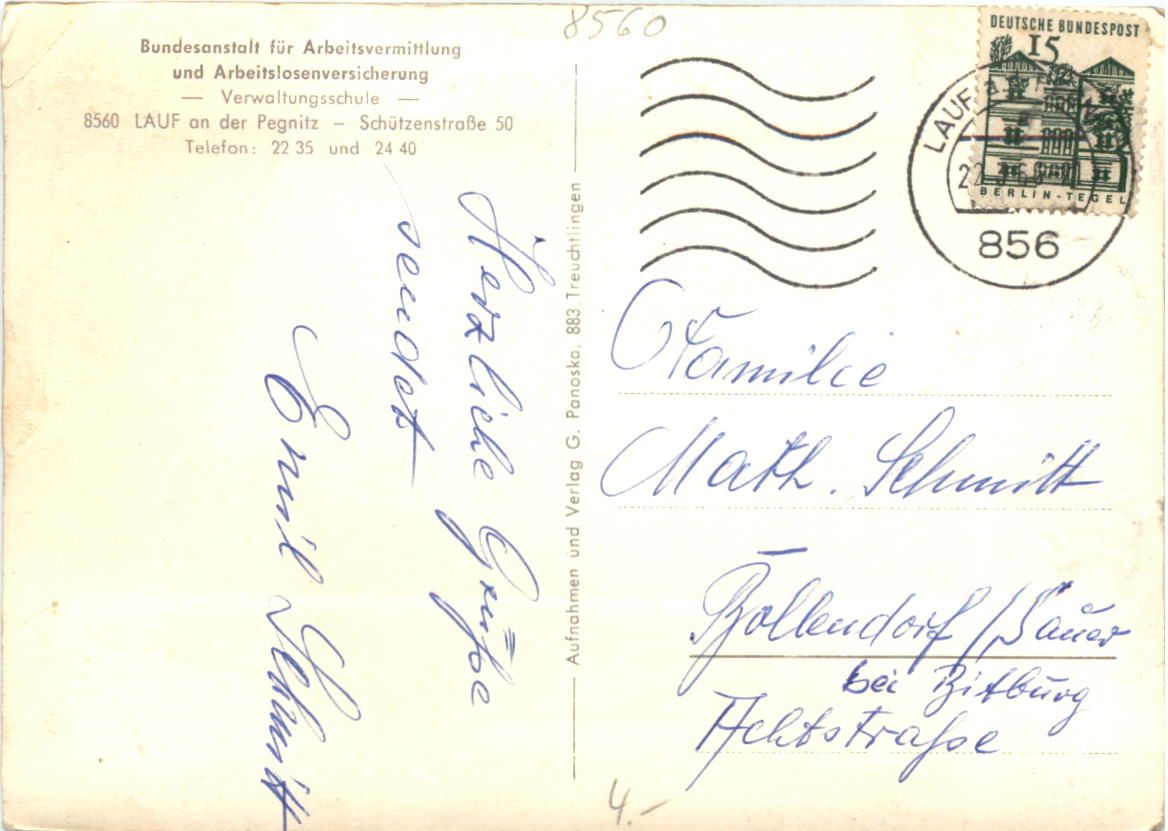 8560
Bundesanstalt für Arbeitsvermittlung
und Arbeitslosenversicherung
— Verwaltungsschule —
8560 LAUF an der Pegnitz – Schützenstraße 50
Telefon: 22 35 und 24 40
Herzliche Grüße
sendet
Emil Schmitt
Aufnahmen und Verlag G. Panoska, 883 Treuchtlingen
DEUTSCHE BUNDESPOST
15
BERLIN-TEGEL
LAUF
22
856
Familie
Math. Schmitt
Bollendorf/Sauer
bei Bitburg
Achtstraße
4.-